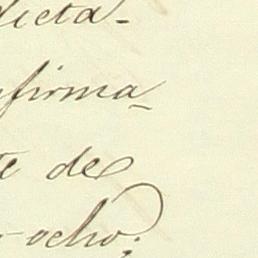 dicta-
firma-
te de
-ocho;